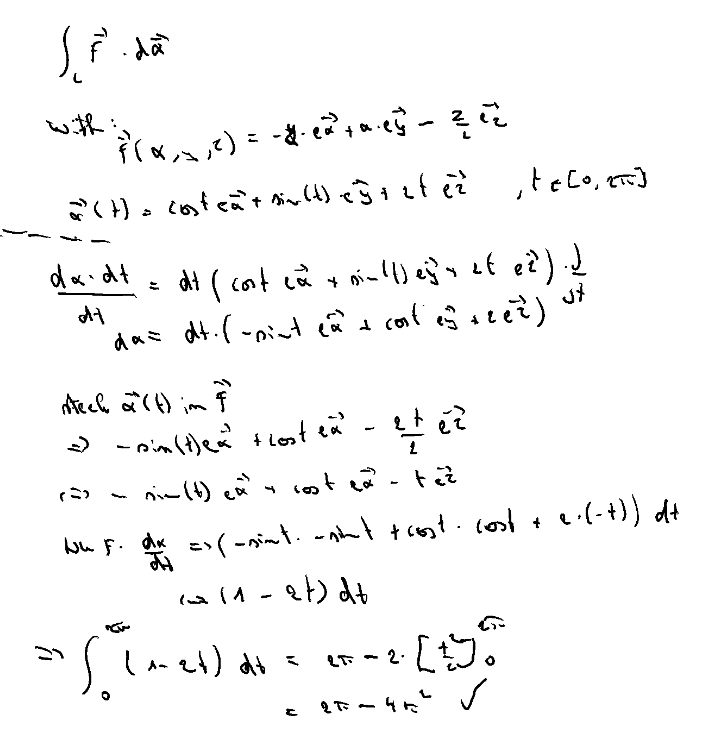 ∫_L f⃗ · dα⃗
with: f⃗(x, y, z) = -y · ex⃗ + x · ey⃗ - z/2 ez⃗
x⃗(t) = cost ex⃗ + sin(t) ey⃗ + 2t ez⃗ , t ∈ [0, 2π]
dx · dt / dt = dt (cost ex⃗ + sin(t) ey⃗ + 2t ez⃗) · d/dt
dx = dt · (-sint ex⃗ + cost ey⃗ + 2 ez⃗)
x⃗(t) in f⃗
=> -sin(t) ex⃗ + cost ex⃗ - 2t/2 ez⃗
<=> - sin(t) ex⃗ + cost ex⃗ - t ez⃗
F · dx/dt => (-sint · -sint + cost · cost + 2 · (-t)) dt
<=> (1 - 2t) dt
=> ∫_0^{2π} (1 - 2t) dt = 2π - 2 · [t²/2]_0^{2π}
= 2π - 4π² ✓